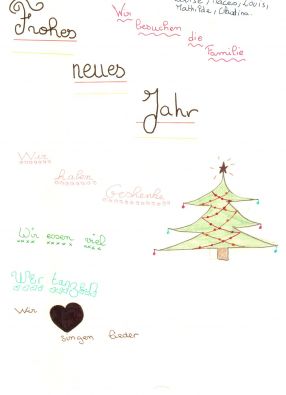 Louis,
Mathilde, Claudina.
Frohes
Wir
besuchen
die
Familie
neues
Jahr
Wir
haben
Geschenke
Wir essen viel
Wir tanzen
Wir
singen lieder